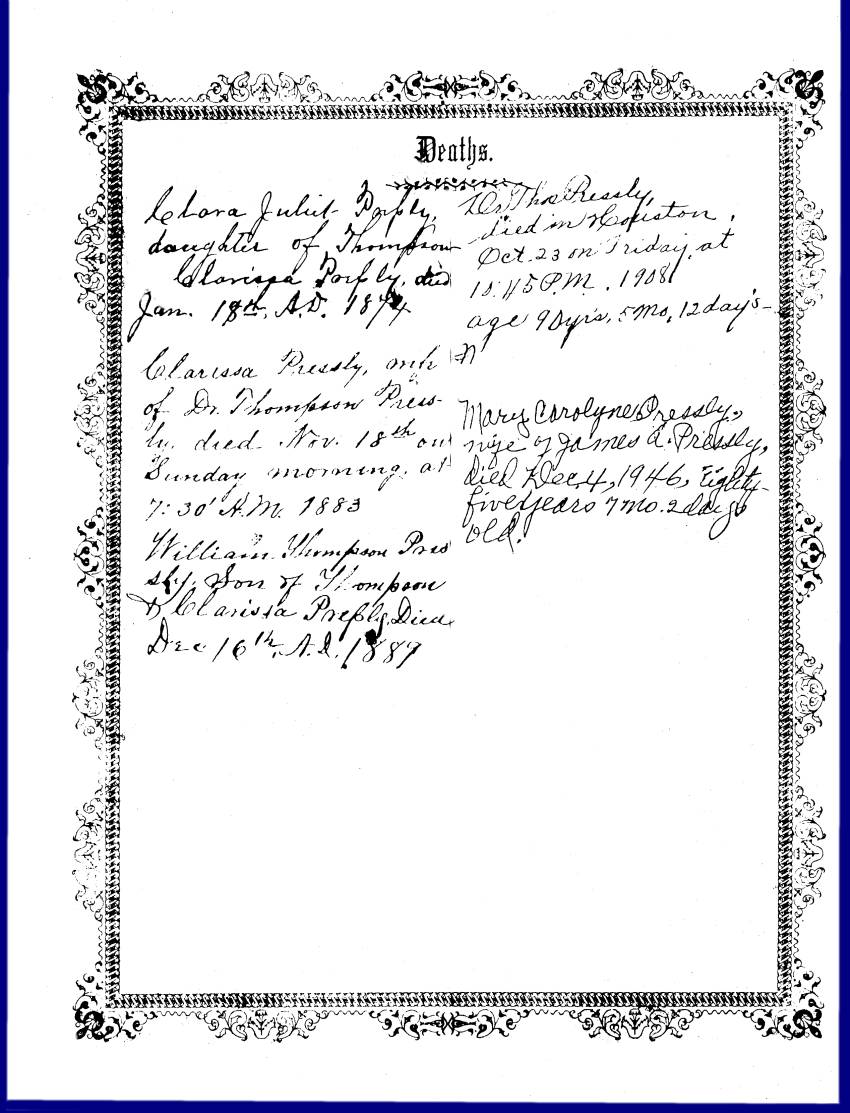 Deaths.
Clara Juliet Pressly,
daughter of Thompson
Clarissa Pressly, died
Jan. 18th, A.D. 1874
Clarissa Pressly, wife
of Dr. Thompson Press-
ly, died Nov. 18th on
Sunday morning, at
7:30 A.M. 1883
William Thompson Pres
sly, Son of Thompson
& Clarissa Pressly, Died
Dec 16th, A.D. 1889
Dr. Thos Pressly,
died in Houston,
Oct. 23 on Friday, at
10:45 P.M., 1908
age 90 yrs, 5 mo, 12 day's
Mary Carolyne Pressly,
wife of James A. Pressly,
died Dec, 4, 1946, Eighty-
five years 7 mo. 2 days
old.